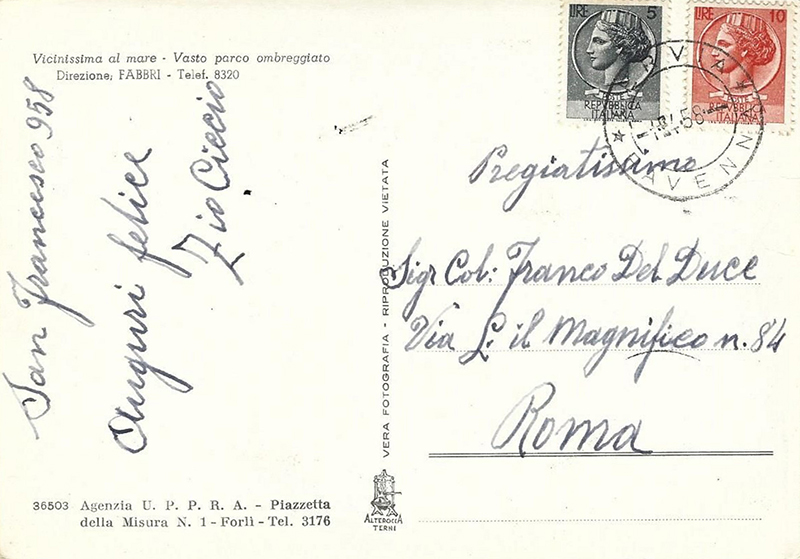 Vicinissima al mare - Vasto parco ombreggiato
Direzione: FABBRI - Telef. 8320
San Francesco 958
Auguri felice
Zio Ciccio
36503 Agenzia U. P. P. R. A. - Piazzetta
della Misura N. 1 - Forlì - Tel. 3176
VERA FOTOGRAFIA - RIPRODUZIONE VIETATA
ALTEROCCA
TERNI
LIRE 5
POSTE
REPVBBLICA
ITALIANA
LIRE 10
POSTE
REPVBBLICA
ITALIANA
58
RAVENNA
Pregiatissimo
Sigr Col: Franco Del Duce
Via L. il Magnifico n. 84
Roma